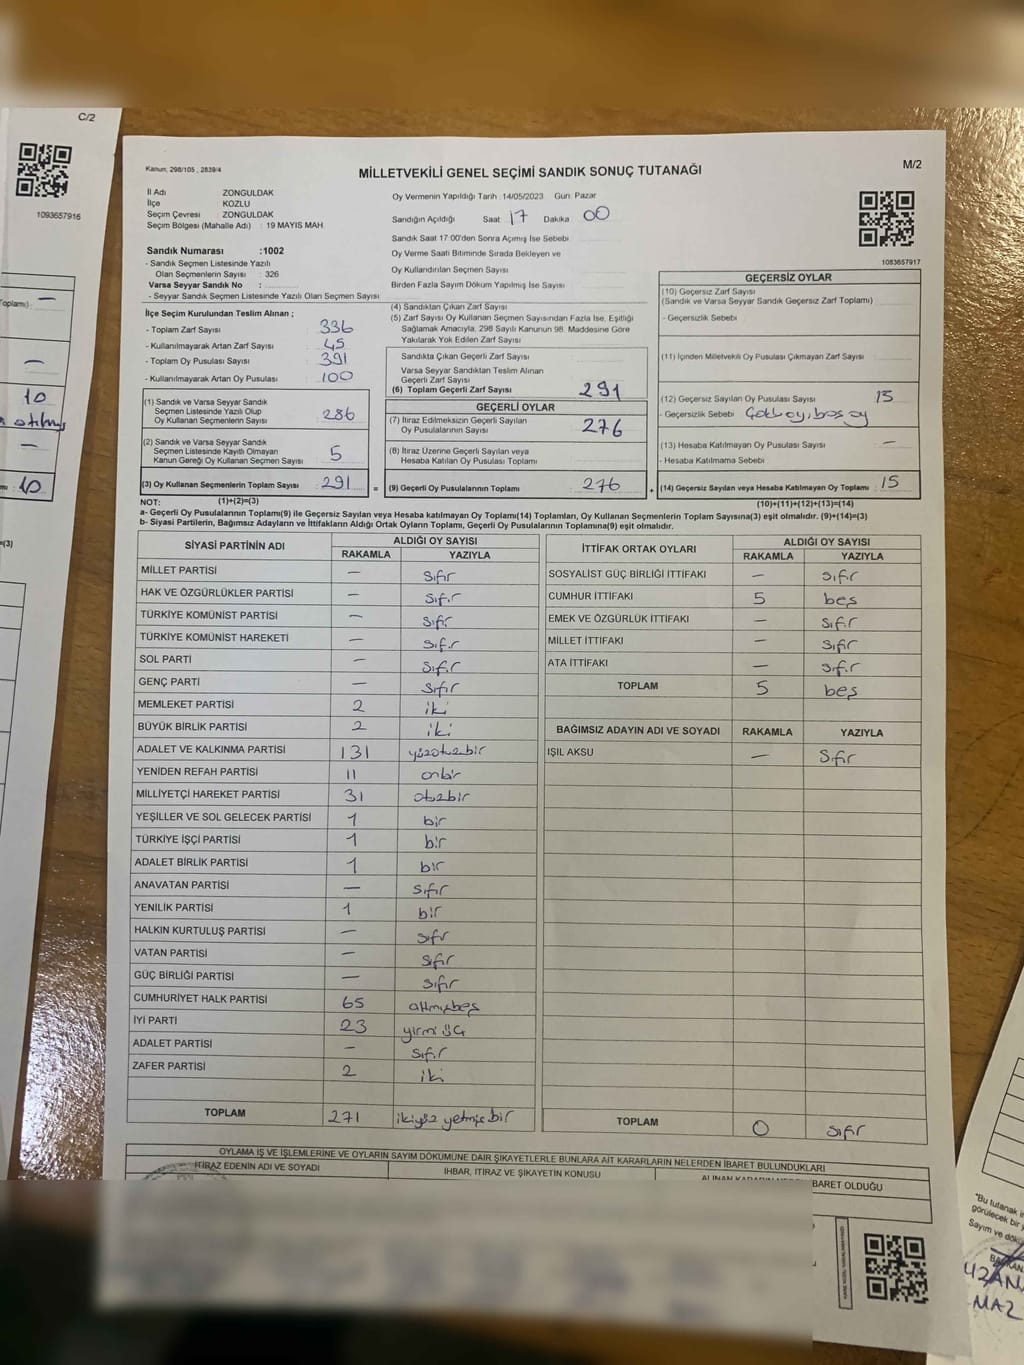 C/2
1093657916
Kanun; 298/105 , 2839/4
MİLLETVEKİLİ GENEL SEÇİMİ SANDIK SONUÇ TUTANAĞI
M/2
İl Adı ZONGULDAK
İlçe KOZLU
Seçim Çevresi ZONGULDAK
Seçim Bölgesi (Mahalle Adı) : 19 MAYIS MAH.
Oy Vermenin Yapıldığı Tarih : 14/05/2023 Gün: Pazar
Sandığın Açıldığı Saat 17 Dakika 00
Sandık Saat 17:00'den Sonra Açılmış İse Sebebi
Oy Verme Saati Bitiminde Sırada Bekleyen ve
Oy Kullandırılan Seçmen Sayısı
Birden Fazla Sayım Döküm Yapılmış İse Sayısı
1083657917
Sandık Numarası :1002
- Sandık Seçmen Listesinde Yazılı
Olan Seçmenlerin Sayısı : 326
Varsa Seyyar Sandık No :
- Seyyar Sandık Seçmen Listesinde Yazılı Olan Seçmen Sayısı
İlçe Seçim Kurulundan Teslim Alınan ;
- Toplam Zarf Sayısı 336
- Kullanılmayarak Artan Zarf Sayısı 45
- Toplam Oy Pusulası Sayısı 391
- Kullanılmayarak Artan Oy Pusulası 100
(1) Sandık ve Varsa Seyyar Sandık
Seçmen Listesinde Yazılı Olup
Oy Kullanan Seçmenlerin Sayısı 286
(2) Sandık ve Varsa Seyyar Sandık
Seçmen Listesinde Kayıtlı Olmayan
Kanun Gereği Oy Kullanan Seçmen Sayısı 5
(3) Oy Kullanan Seçmenlerin Toplam Sayısı 291 =
(4) Sandıktan Çıkan Zarf Sayısı
(5) Zarf Sayısı Oy Kullanan Seçmen Sayısından Fazla İse, Eşitliği
Sağlamak Amacıyla, 298 Sayılı Kanunun 98. Maddesine Göre
Yakılarak Yok Edilen Zarf Sayısı
Sandıkta Çıkan Geçerli Zarf Sayısı
Varsa Seyyar Sandıktan Teslim Alınan
Geçerli Zarf Sayısı
(6) Toplam Geçerli Zarf Sayısı 291
GEÇERLİ OYLAR
(7) İtiraz Edilmeksizin Geçerli Sayılan
Oy Pusulalarının Sayısı 276
(8) İtiraz Üzerine Geçerli Sayılan veya
Hesaba Katılan Oy Pusulası Toplamı
(9) Geçerli Oy Pusulalarının Toplamı 276 +
GEÇERSİZ OYLAR
(10) Geçersiz Zarf Sayısı
(Sandık ve Varsa Seyyar Sandık Geçersiz Zarf Toplamı)
- Geçersizlik Sebebi
(11) İçinden Milletvekili Oy Pusulası Çıkmayan Zarf Sayısı
(12) Geçersiz Sayılan Oy Pusulası Sayısı 15
- Geçersizlik Sebebi Çoklu oy, boş oy
(13) Hesaba Katılmayan Oy Pusulası Sayısı —
- Hesaba Katılmama Sebebi
(14) Geçersiz Sayılan veya Hesaba Katılmayan Oy Toplamı : 15
NOT: (1)+(2)=(3) (10)+(11)+(12)+(13)=(14)
a- Geçerli Oy Pusulaları Toplamı(9) ile Geçersiz Sayılan veya Hesaba katılmayan Oy Toplamı(14) Toplamları, Oy Kullanan Seçmenlerin Toplam Sayısına(3) eşit olmalıdır. (9)+(14)=(3)
b- Siyasi Partilerin, Bağımsız Adayların ve İttifakların Aldığı Ortak Oyların Toplamı, Geçerli Oy Pusulalarının Toplamına(9) eşit olmalıdır.
SİYASİ PARTİNİN ADI ALDIĞI OY SAYISI
RAKAMLA YAZIYLA
MİLLET PARTİSİ — sıfır
HAK VE ÖZGÜRLÜKLER PARTİSİ — sıfır
TÜRKİYE KOMÜNİST PARTİSİ — sıfır
TÜRKİYE KOMÜNİST HAREKETİ — sıfır
SOL PARTİ — sıfır
GENÇ PARTİ — sıfır
MEMLEKET PARTİSİ 2 iki
BÜYÜK BİRLİK PARTİSİ 2 iki
ADALET VE KALKINMA PARTİSİ 131 yüzotuzbir
YENİDEN REFAH PARTİSİ 11 onbir
MİLLİYETÇİ HAREKET PARTİSİ 31 otuzbir
YEŞİLLER VE SOL GELECEK PARTİSİ 1 bir
TÜRKİYE İŞÇİ PARTİSİ 1 bir
ADALET BİRLİK PARTİSİ 1 bir
ANAVATAN PARTİSİ — sıfır
YENİLİK PARTİSİ 1 bir
HALKIN KURTULUŞ PARTİSİ — sıfır
VATAN PARTİSİ — sıfır
GÜÇ BİRLİĞİ PARTİSİ — sıfır
CUMHURİYET HALK PARTİSİ 65 altmışbeş
İYİ PARTİ 23 yirmi üç
ADALET PARTİSİ — sıfır
ZAFER PARTİSİ 2 iki
TOPLAM 271 ikiyüz yetmiş bir
İTTİFAK ORTAK OYLARI ALDIĞI OY SAYISI
RAKAMLA YAZIYLA
SOSYALİST GÜÇ BİRLİĞİ İTTİFAKI — sıfır
CUMHUR İTTİFAKI 5 beş
EMEK VE ÖZGÜRLÜK İTTİFAKI — sıfır
MİLLET İTTİFAKI — sıfır
ATA İTTİFAKI — sıfır
TOPLAM 5 beş
BAĞIMSIZ ADAYIN ADI VE SOYADI RAKAMLA YAZIYLA
IŞIL AKSU — sıfır
TOPLAM 0 sıfır
OYLAMA İŞ VE İŞLEMLERİNE VE OYLARIN SAYIM DÖKÜMÜNE DAİR ŞİKAYETLERLE BUNLARA AİT KARARLARIN NELERDEN İBARET BULUNDUKLARI
İTİRAZ EDENİN ADI VE SOYADI İHBAR, İTİRAZ VE ŞİKAYETİN KONUSU
BARET OLDUĞU
10
10
=(3)
*Bu tutanak
görülecek bir
Sayım ve